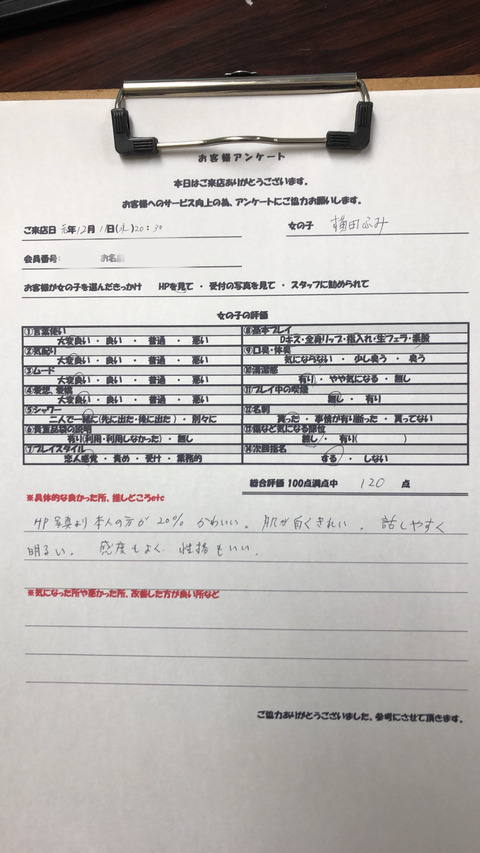 お客様アンケート
本日はご来店ありがとうございます。
お客様へのサービス向上の為、アンケートにご協力お願いします。
ご来店日 元年12月11日(水)20:30 女の子 横田ふみ
会員番号: お名前
お客様が女の子を選んだきっかけ HPを見て ・ 受付の写真を見て ・ スタッフに勧められて
女の子の評価
①言葉使い
大変良い ・ 良い ・ 普通 ・ 悪い
②気配り
大変良い ・ 良い ・ 普通 ・ 悪い
③ムード
大変良い ・ 良い ・ 普通 ・ 悪い
④愛想、愛嬌
大変良い ・ 良い ・ 普通 ・ 悪い
⑤シャワー
二人で一緒に(先に出た・後に出た) ・ 別々に
⑥貴重品袋の説明
有り(利用・利用しなかった) ・ 無し
⑦プレイスタイル
恋人感覚 ・ 責め ・ 受け ・ 業務的
⑧基本プレイ
Dキス・全身リップ・指入れ・生フェラ・素股
⑨口臭・体臭
気にならない ・ 少し臭う ・ 臭う
⑩清潔感
有り ・ やや気になる ・ 無し
⑪プレイ中の喫煙
無し ・ 有り
⑫名刺
貰った ・ 事情が有り断った ・ 貰ってない
⑬傷など気になる部位
無し ・ 有り( )
⑭次回指名
する ・ しない
総合評価 100点満点中 120 点
※具体的な良かった所、推しどころetc
HP写真より本人の方が20%かわいい。肌が白くきれい。話しやすく
明るい。感度もよく、性格もいい。
※気になった所や悪かった所、改善した方が良い所など
ご協力ありがとうございました、参考にさせて頂きます。